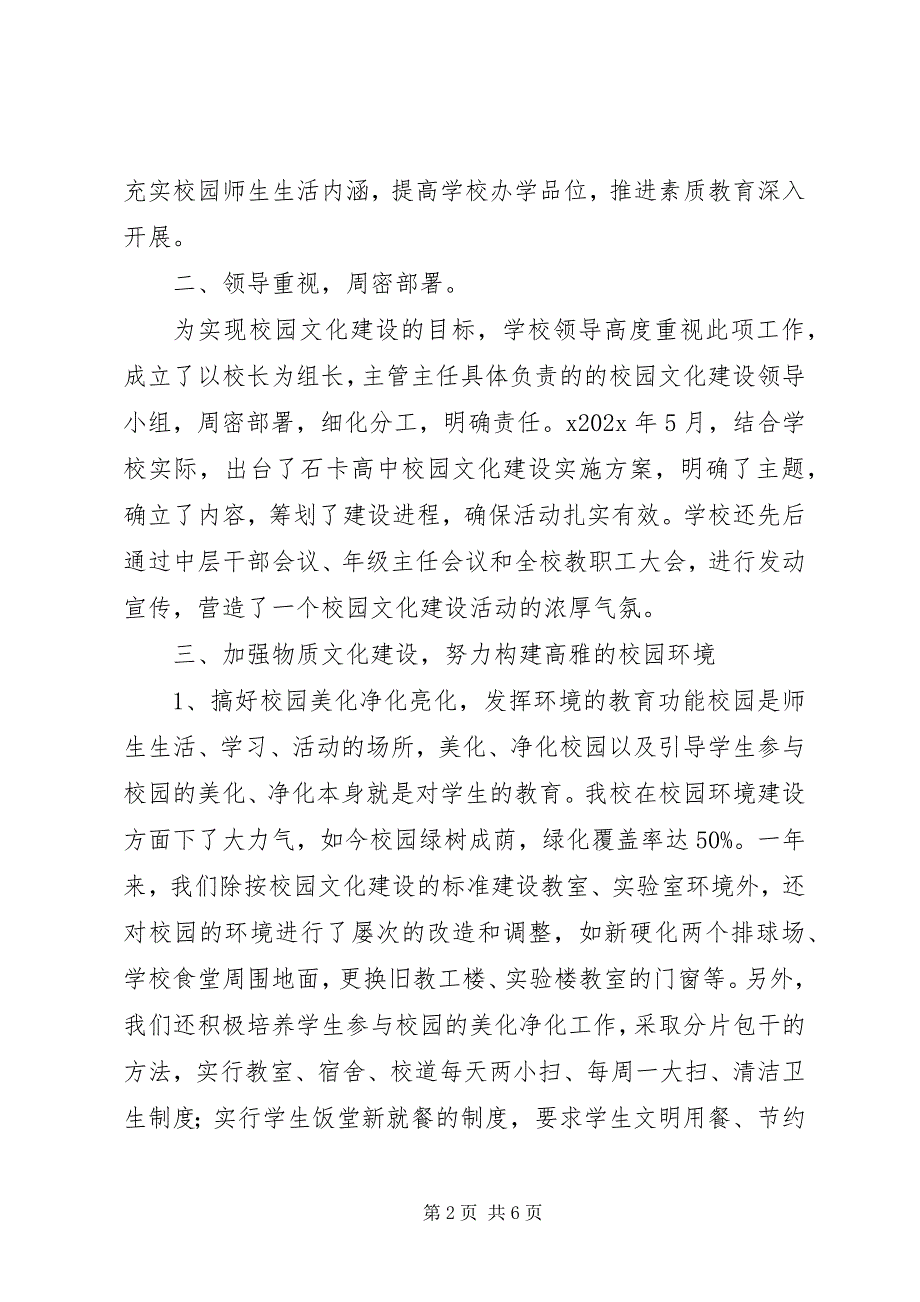 充实校园师生生活内涵，提高学校办学品位，推进素质教育深入
开展。
二、领导重视，周密部署。
为实现校园文化建设的目标，学校领导高度重视此项工作，
成立了以校长为组长，主管主任具体负责的的校园文化建设领导
小组，周密部署，细化分工，明确责任。x202x 年 5 月，结合学
校实际，出台了石卡高中校园文化建设实施方案，明确了主题，
确立了内容，筹划了建设进程，确保活动扎实有效。学校还先后
通过中层干部会议、年级主任会议和全校教职工大会，进行发动
宣传，营造了一个校园文化建设活动的浓厚气氛。
三、加强物质文化建设，努力构建高雅的校园环境
1、搞好校园美化净化亮化，发挥环境的教育功能校园是师
生生活、学习、活动的场所，美化、净化校园以及引导学生参与
校园的美化、净化本身就是对学生的教育。我校在校园环境建设
方面下了大力气，如今校园绿树成荫，绿化覆盖率达 50%。一年
来，我们除按校园文化建设的标准建设教室、实验室环境外，还
对校园的环境进行了屡次的改造和调整，如新硬化两个排球场、
学校食堂周围地面，更换旧教工楼、实验楼教室的门窗等。另外，
我们还积极培养学生参与校园的美化净化工作，采取分片包干的
方法，实行教室、宿舍、校道每天两小扫、每周一大扫、清洁卫
生制度；实行学生饭堂新就餐的制度，要求学生文明用餐、节约
第 2 页 共 6 页